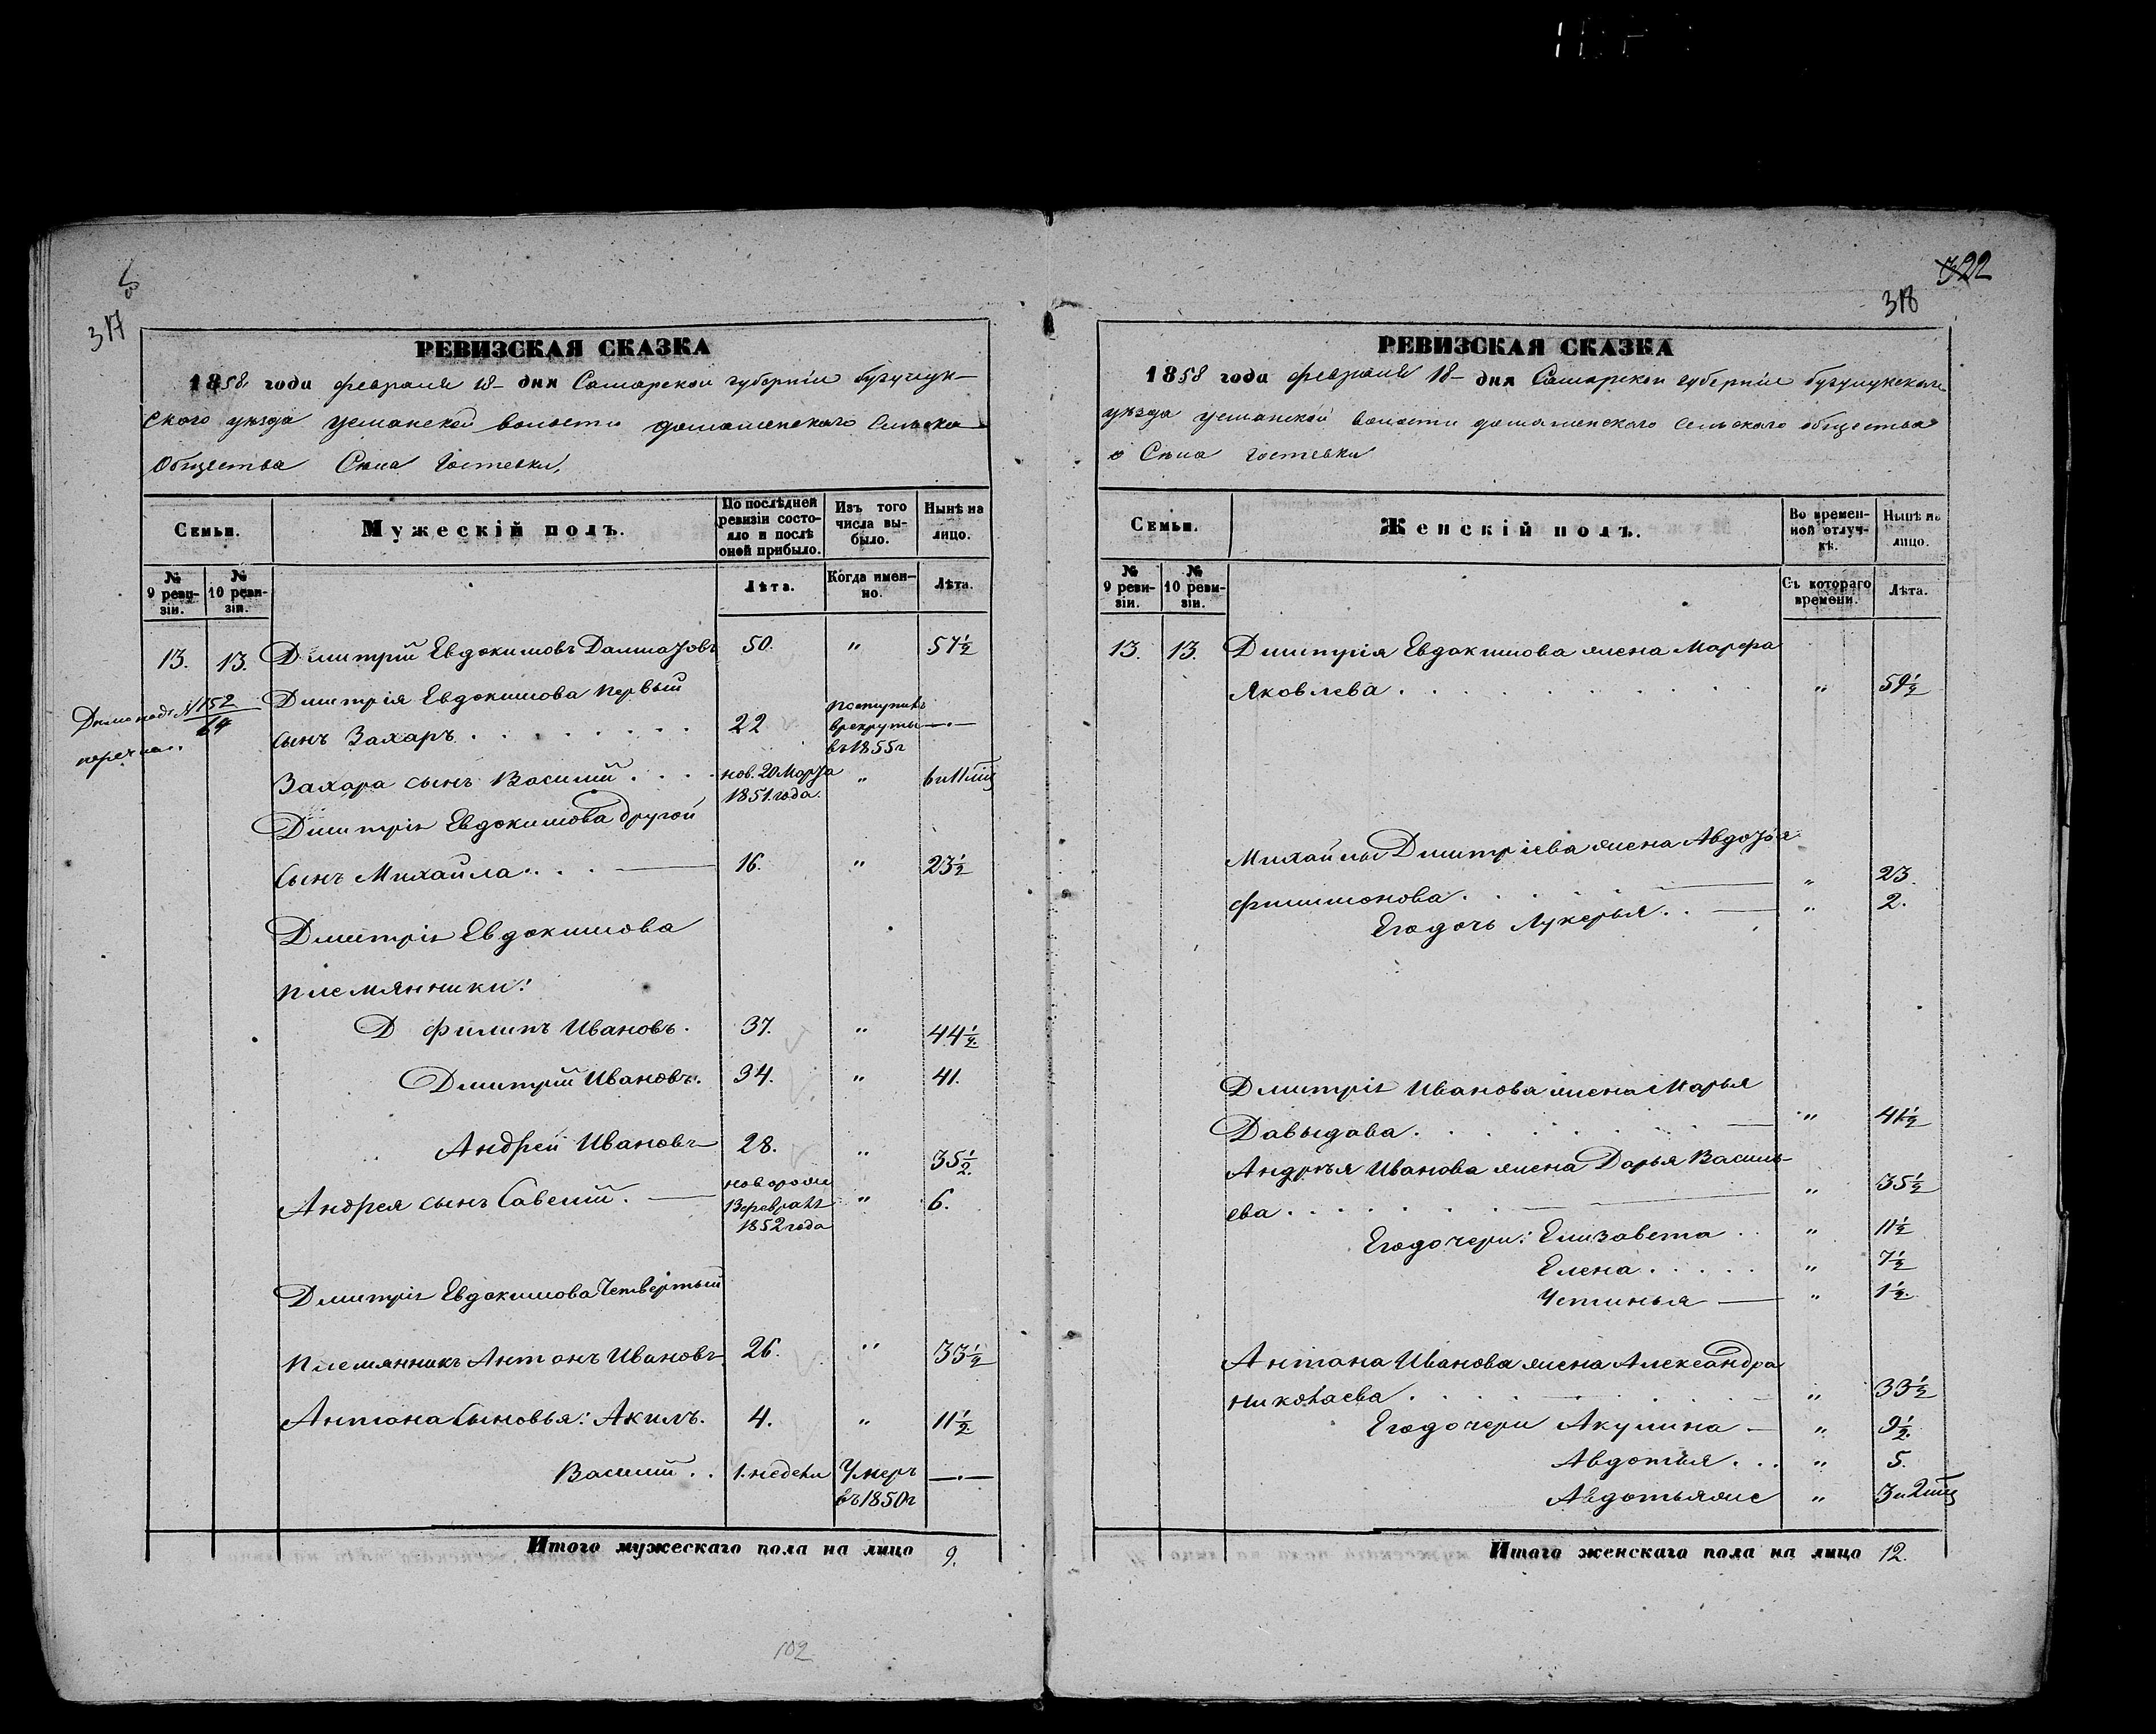 317
РЕВИЗСКАЯ СКАЗКА
1858 года февраля 18 дня Самарской губернiи бугурук-
ского уѣзда усманской волости домашенского Сельска
Общества Села Гостевки.
Семьи.
Мужескiй полъ.
По послѣдней ревизiи состояло и послѣ оной прибыло.
Изъ того числа вы-было.
Нынѣ на лицо.
№ 9 реви-зiи.
№ 10 реви-зiи.
Лѣта.
Когда имен-но.
Лѣта.
13. 13. Дмитрiй Евдокимовъ 50. " 57½
Дмитрiя Евдокимова первый
сынъ Захаръ 22 поступилъ в рекруты въ 1855 г —
№ 152
64
Захара сынъ Василiй нов. 20 Марта 1851. года. " 6 и 11 мц
Дмитрiя Евдокимова другой
сынъ Михайла 16. " 23½
Дмитрiя Евдокимова
племянники:
Д Филипъ Ивановъ. 37. " 44½
Дмитрiй Ивановъ. 34. " 41.
Андрей Ивановъ 28. " 35½
Андрея сынъ Савелiй. новорож 13 февраля 1852 года " 6.
Дмитрiя Евдокимова Четвертый
племянникъ Антонъ Ивановъ 26. " 33½
Антона сыновья: Акимъ. 4. " 11½
Василiй . . 1. недели Умеръ въ 1850 г —
Итого мужескаго пола на лицо 9.
102
322
318
РЕВИЗСКАЯ СКАЗКА
1858 года февраля 18 дня Самарской губернiи бугурукскаго
уѣзда усманской волости домашенского сельского общества
Села Гостевки
Семьи.
Женскiй полъ.
Во времен-ной отлуч-кѣ.
Нынѣ на лицо.
№ 9 реви-зiи.
№ 10 реви-зiи.
Съ котораго времени.
Лѣта.
13. 13. Дмитрiя Евдакимова жена Марфа
Яковлева " 59½
Михайлы Дмитрiева жена Авдотья
Филимонова " 23
Его дочь Лукерья " 2.
Дмитрiя Иванова жена Марья
Давыдова " 41½
Андрѣя Иванова жена Дарья Василь-
ева " 35½
Его дочери: Елизавета " 11½
Елена " 7½
Устинья " 1½
Антона Иванова жена Александра
Николаева " 33½
Его дочери Акулина " 9½
Авдотья " 5.
Авдотья же " 3 и 2 мц
Итого женскаго пола на лицо 12.